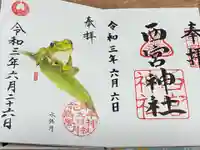 奉拝
西宮神社
令和三年六月六日
奉拝
水無月
令和三年六月二十六日